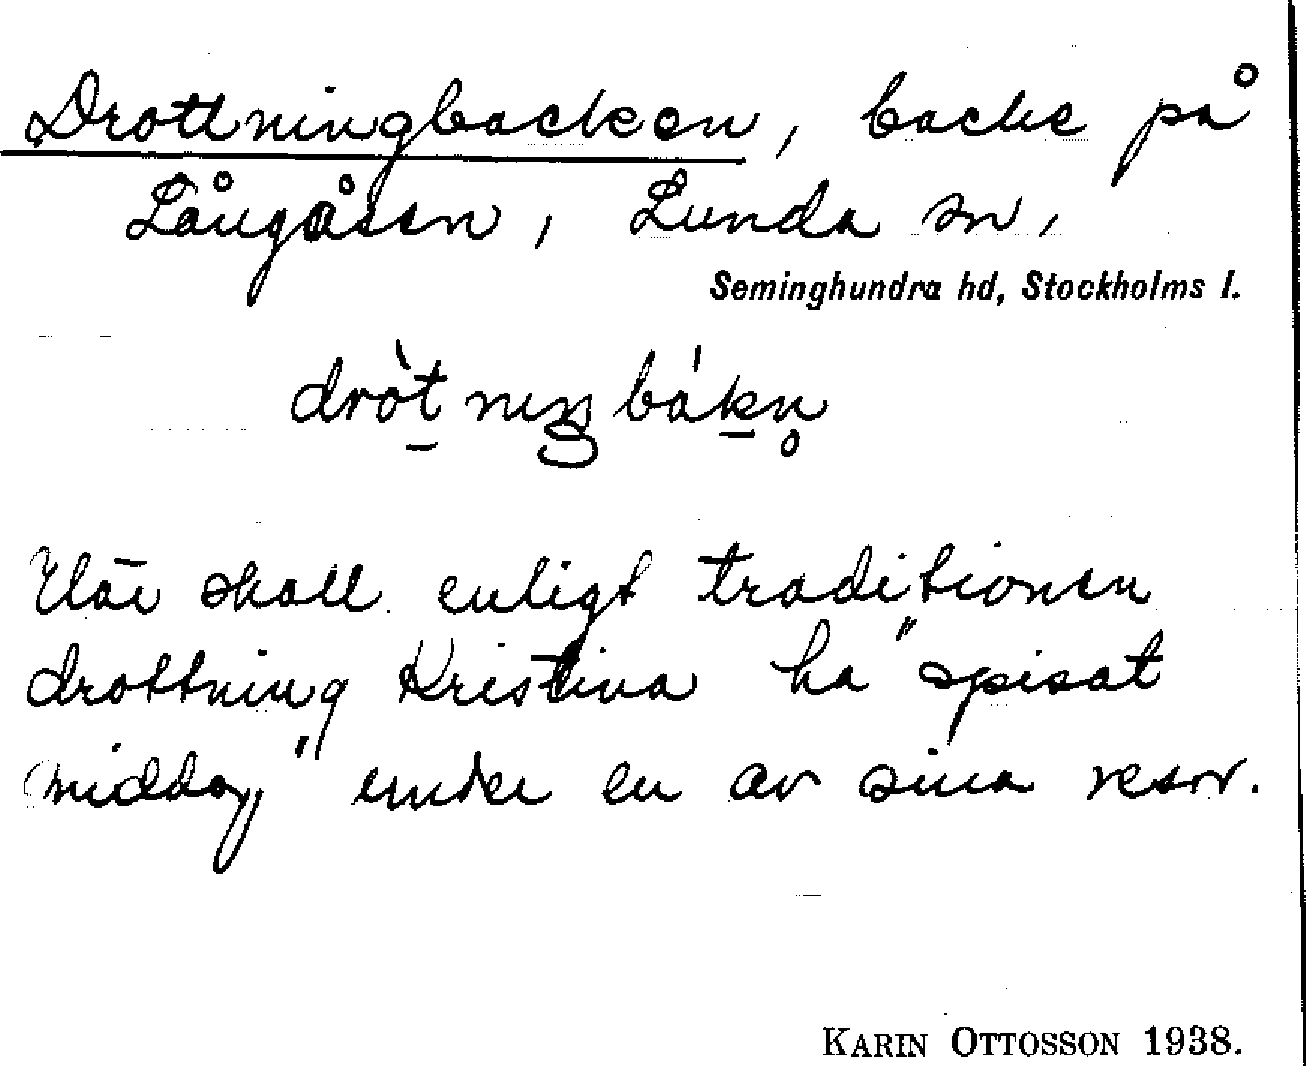 Drottningbacken, backe på
Långåsen, Lunda sn,
Seminghundra hd, Stockholms l.
drò̱tnɪŋbáḵn̥
Här skall enligt traditionen
drottning Kristina ha "spisat
middag" under en av sina resor.
KARIN OTTOSSON 1938.